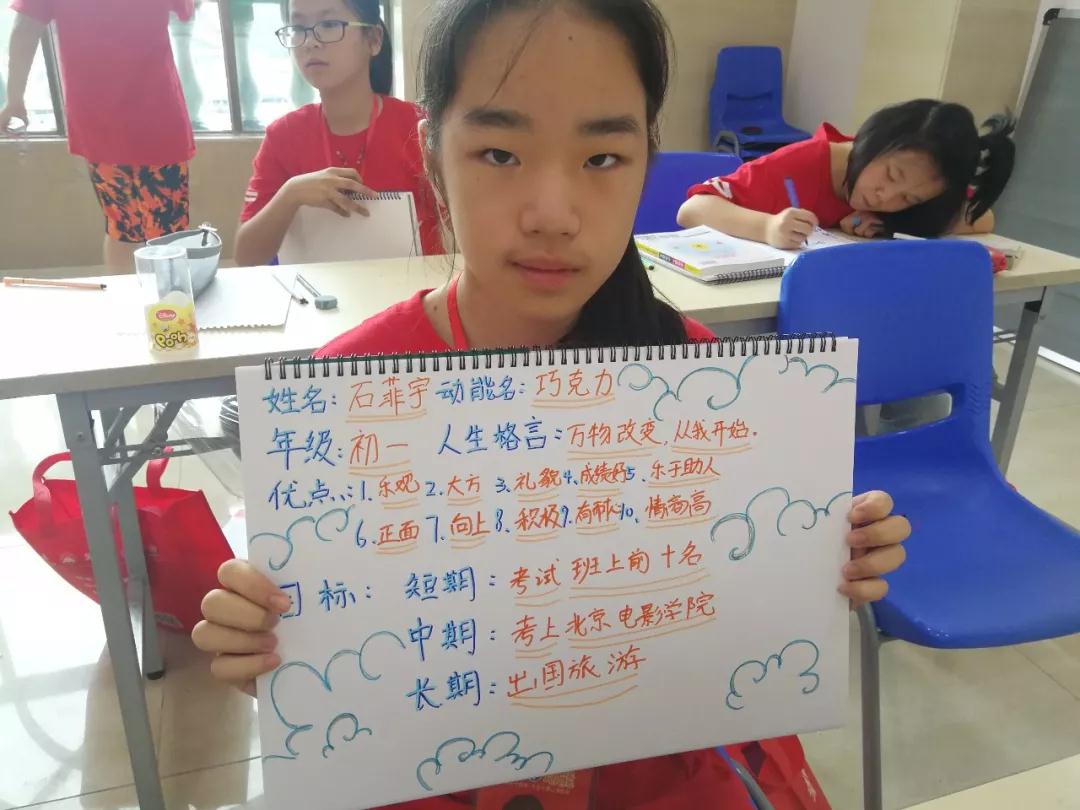 姓名：石菲宇 动能名：巧克力
年级：初一 人生格言：万物改变，从我开始.
优点：1.乐观 2.大方 3.礼貌 4.成绩好 5.乐于助人
6.正面 7.向上 8.积极 9.有耐心 10、情商高
目标：短期：考试 班上前十名
中期：考上北京电影学院
长期：出国旅游
Disney
Pooh